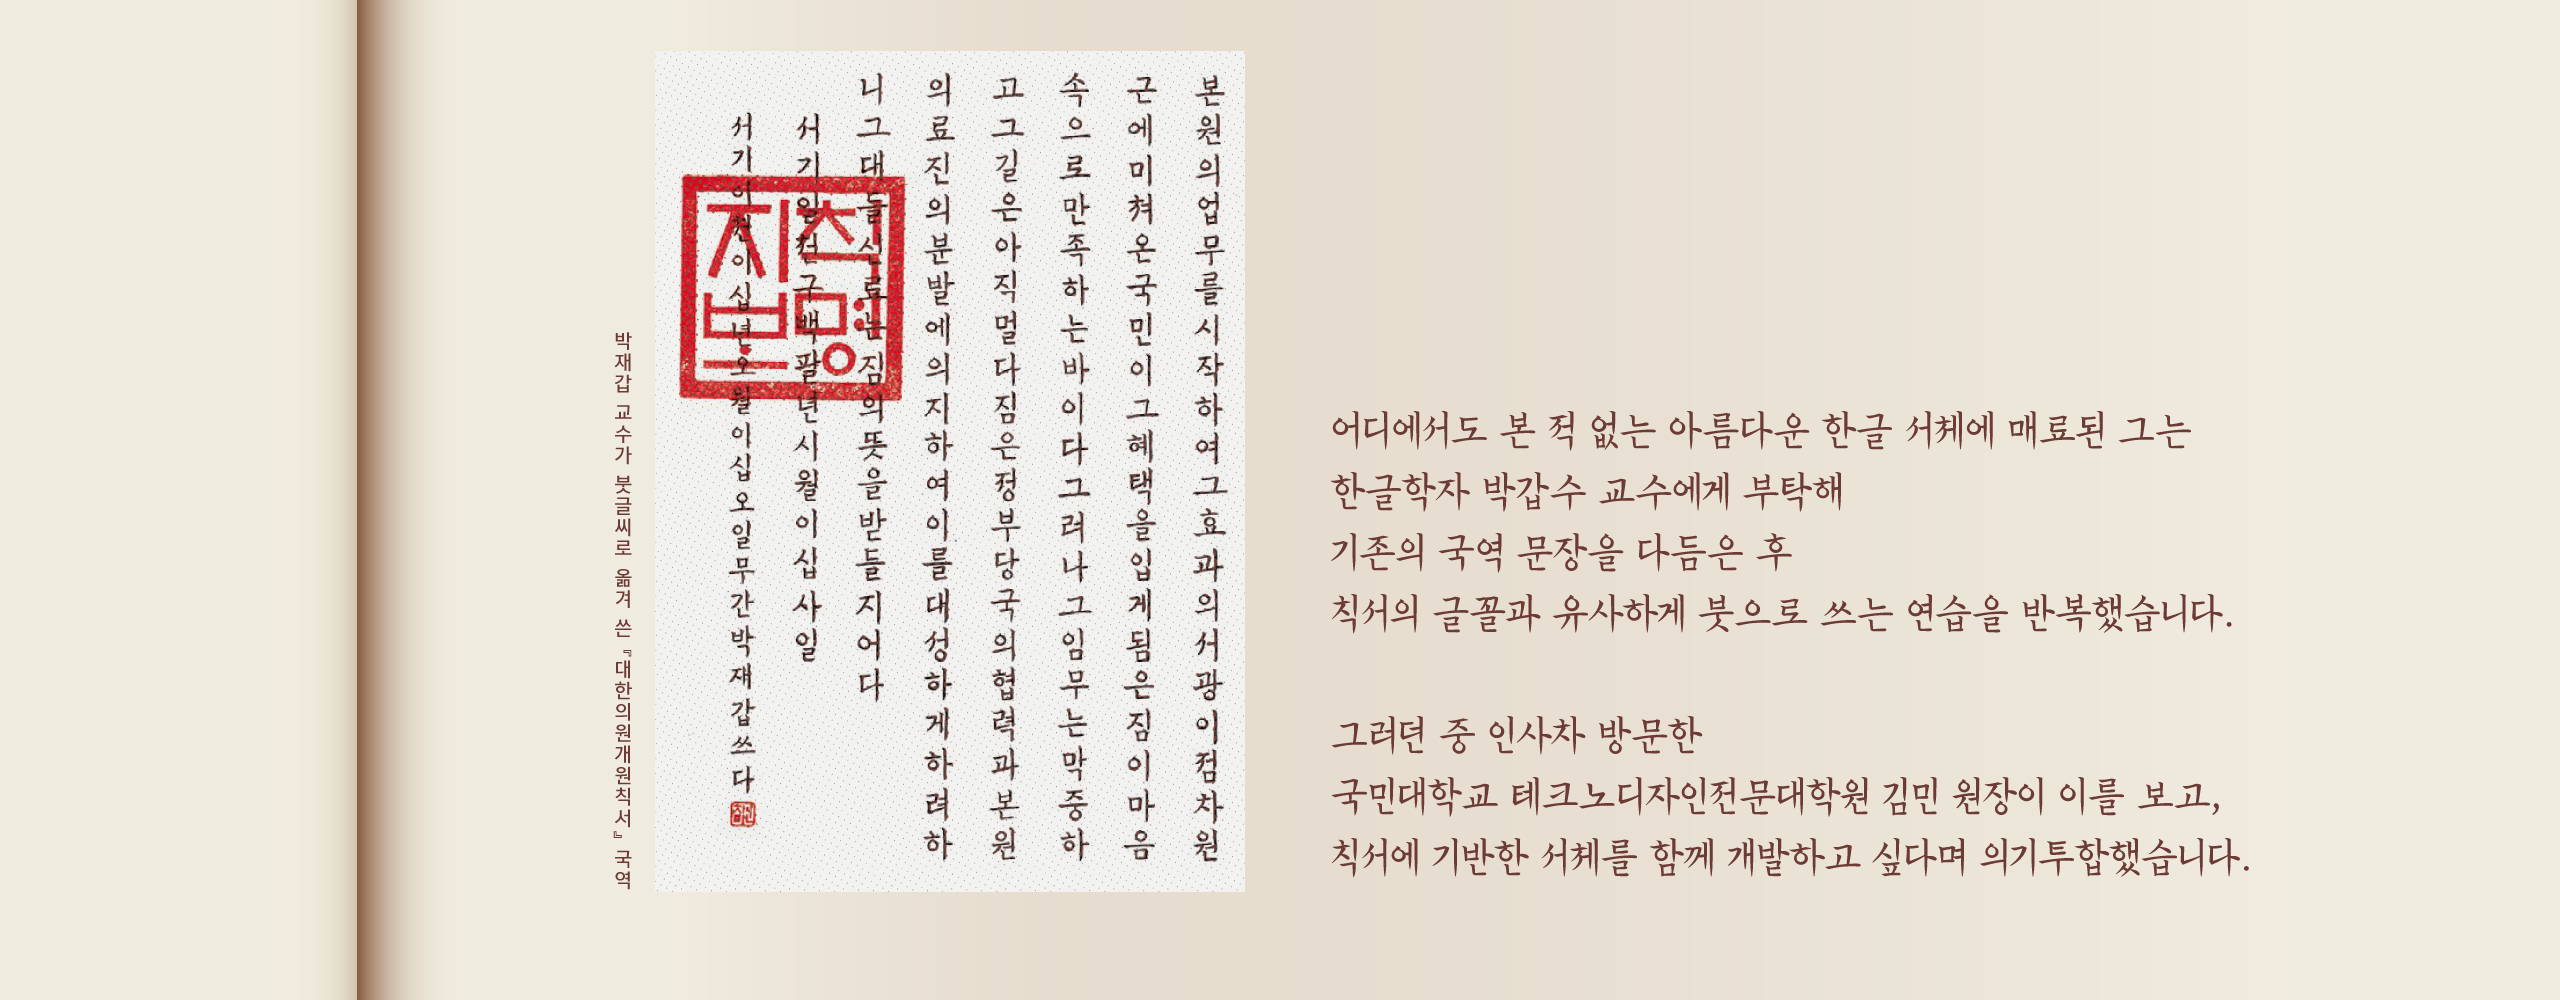 박재갑 교수가 붓글씨로 옮겨 쓴 『대한의원개원칙서』 국역
본원의업무를시작하여그효과의서광이점차원
근에미쳐온국민이그혜택을입게됨은짐이마음
속으로만족하는바이다그러나그임무는막중하
고그길은아직멀다짐은정부당국의협력과본원
의료진의분발에의지하여이를대성하게하려하
니그대들신료는짐의뜻을받들지어다
서기일천구백팔년시월이십사일
서기이천이십년오월이십오일무간박재갑쓰다
칙명지보
어디에서도 본 적 없는 아름다운 한글 서체에 매료된 그는
한글학자 박갑수 교수에게 부탁해
기존의 국역 문장을 다듬은 후
칙서의 글꼴과 유사하게 붓으로 쓰는 연습을 반복했습니다.
그러던 중 인사차 방문한
국민대학교 테크노디자인전문대학원 김민 원장이 이를 보고,
칙서에 기반한 서체를 함께 개발하고 싶다며 의기투합했습니다.